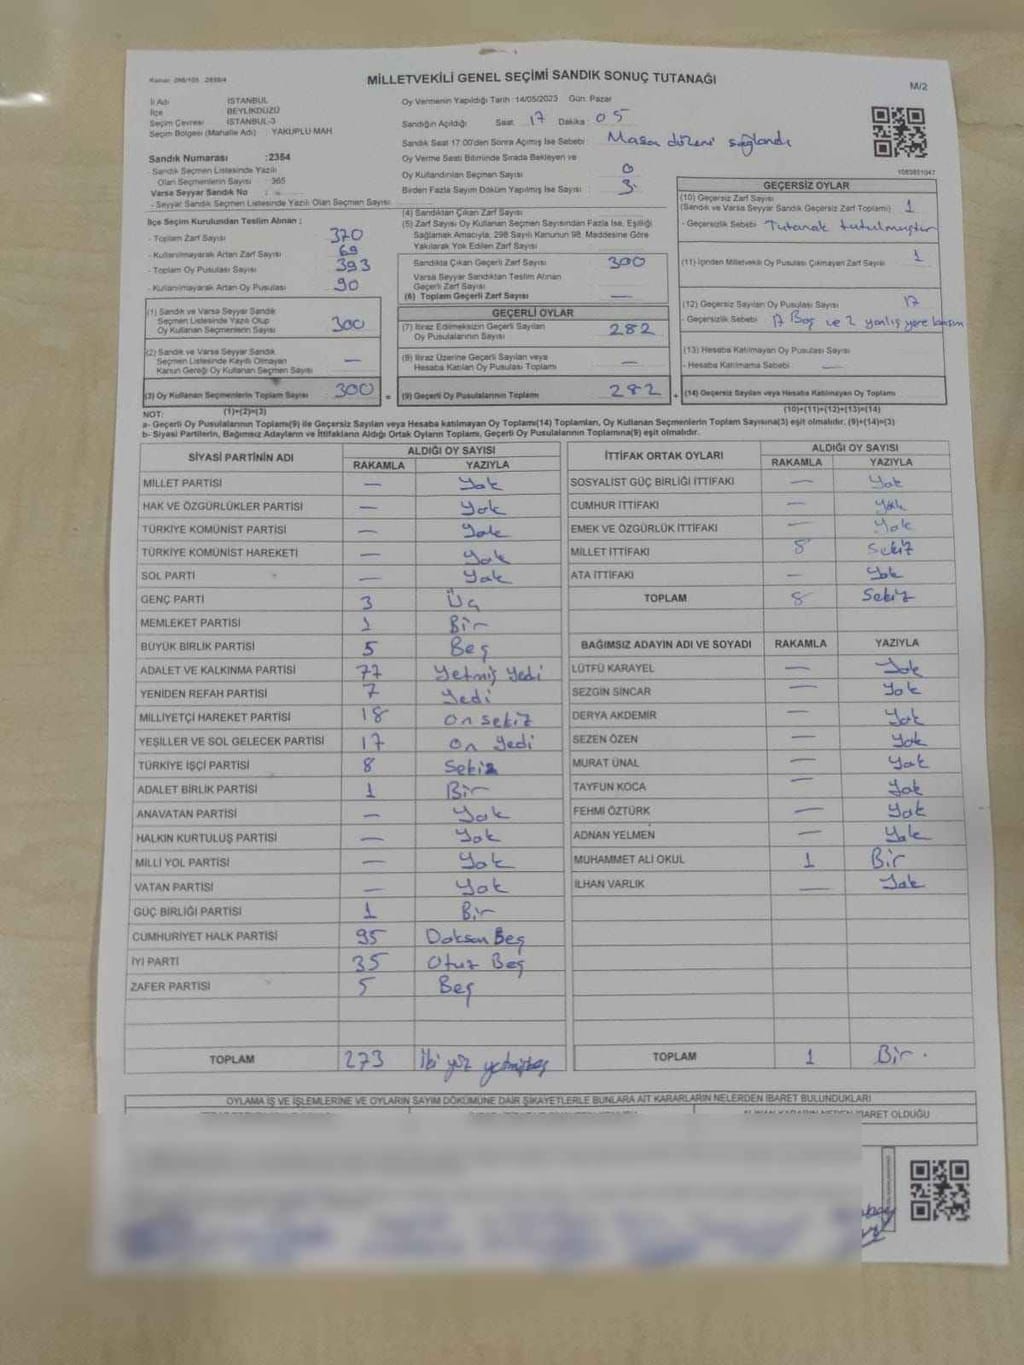 MİLLETVEKİLİ GENEL SEÇİMİ SANDIK SONUÇ TUTANAĞI
M/2
İl Adı İSTANBUL
İlçe BEYLİKDÜZÜ
Seçim Çevresi İSTANBUL-3
Seçim Bölgesi (Mahalle Adı) YAKUPLU MAH.
Sandık Numarası :2354
- Sandık Seçmen Listesinde Yazılı
Olan Seçmenlerin Sayısı : 365
Varsa Seyyar Sandık No :
- Seyyar Sandık Seçmen Listesinde Yazılı Olan Seçmen Sayısı
Oy Vermenin Yapıldığı Tarih :14/05/2023 Gün: Pazar
Sandığın Açıldığı Saat 17 Dakika 05
Sandık Saat 17:00'den Sonra Açılmış İse Sebebi Masa düzeni sağlandı
Oy Verme Saati Bitiminde Sırada Bekleyen ve
Oy Kullandırılan Seçmen Sayısı 0
Birden Fazla Sayım Döküm Yapılmış İse Sayısı 3
İlçe Seçim Kurulundan Teslim Alınan :
- Toplam Zarf Sayısı 370
- Kullanılmayarak Artan Zarf Sayısı 69
- Toplam Oy Pusulası Sayısı 393
- Kullanılmayarak Artan Oy Pusulası 90
(1) Sandık ve Varsa Seyyar Sandık
Seçmen Listesinde Yazılı Olup
Oy Kullanan Seçmenlerin Sayısı 300
(2) Sandık ve Varsa Seyyar Sandık
Seçmen Listesinde Kayıtlı Olmayan
Kanun Gereği Oy Kullanan Seçmen Sayısı —
(3) Oy Kullanan Seçmenlerin Toplam Sayısı 300 =
(1)+(2)=(3)
(4) Sandıktan Çıkan Zarf Sayısı
(5) Zarf Sayısı Oy Kullanan Seçmen Sayısından Fazla İse, Eşitliği
Sağlamak Amacıyla, 298 Sayılı Kanunun 98. Maddesine Göre
Yakılarak Yok Edilen Zarf Sayısı
Sandıkta Çıkan Geçerli Zarf Sayısı 300
Varsa Seyyar Sandıktan Teslim Alınan
Geçerli Zarf Sayısı
(6) Toplam Geçerli Zarf Sayısı —
GEÇERLİ OYLAR
(7) İtiraz Edilmeksizin Geçerli Sayılan
Oy Pusulalarının Sayısı 282
(8) İtiraz Üzerine Geçerli Sayılan veya
Hesaba Katılan Oy Pusulası Toplamı —
(9) Geçerli Oy Pusulalarının Toplamı 282 +
GEÇERSİZ OYLAR
(10) Geçersiz Zarf Sayısı
(Sandık ve Varsa Seyyar Sandık Geçersiz Zarf Toplamı) 1
- Geçersizlik Sebebi Tutanak tutulmuştur
(11) İçinden Milletvekili Oy Pusulası Çıkmayan Zarf Sayısı 1
(12) Geçersiz Sayılan Oy Pusulası Sayısı 17
- Geçersizlik Sebebi 17 Boş ve 2 yanlış yere
(13) Hesaba Katılmayan Oy Pusulası Sayısı
- Hesaba Katılmama Sebebi —
(14) Geçersiz Sayılan veya Hesaba Katılmayan Oy Toplamı
(10)+(11)+(12)+(13)=(14)
NOT:
a- Geçerli Oy Pusulalarının Toplamı(9) ile Geçersiz Sayılan veya Hesaba katılmayan Oy Toplamı(14) Toplamları, Oy Kullanan Seçmenlerin Toplam Sayısına(3) eşit olmalıdır. (9)+(14)=(3)
b- Siyasi Partilerin, Bağımsız Adayların ve İttifakların Aldığı Ortak Oyların Toplamı, Geçerli Oy Pusulalarının Toplamına(9) eşit olmalıdır.
SİYASİ PARTİNİN ADI ALDIĞI OY SAYISI
RAKAMLA YAZIYLA
MİLLET PARTİSİ — Yok
HAK VE ÖZGÜRLÜKLER PARTİSİ — Yok
TÜRKİYE KOMÜNİST PARTİSİ — Yok
TÜRKİYE KOMÜNİST HAREKETİ — Yok
SOL PARTİ — Yok
GENÇ PARTİ 3 Üç
MEMLEKET PARTİSİ 1 Bir
BÜYÜK BİRLİK PARTİSİ 5 Beş
ADALET VE KALKINMA PARTİSİ 77 Yetmiş Yedi
YENİDEN REFAH PARTİSİ 7 Yedi
MİLLİYETÇİ HAREKET PARTİSİ 18 On sekiz
YEŞİLLER VE SOL GELECEK PARTİSİ 17 On Yedi
TÜRKİYE İŞÇİ PARTİSİ 8 Sekiz
ADALET BİRLİK PARTİSİ 1 Bir
ANAVATAN PARTİSİ — Yok
HALKIN KURTULUŞ PARTİSİ — Yok
MİLLİ YOL PARTİSİ — Yok
VATAN PARTİSİ — Yok
GÜÇ BİRLİĞİ PARTİSİ 1 Bir
CUMHURİYET HALK PARTİSİ 95 Doksan Beş
İYİ PARTİ 35 Otuz Beş
ZAFER PARTİSİ 5 Beş
TOPLAM 273 İki yüz
İTTİFAK ORTAK OYLARI ALDIĞI OY SAYISI
RAKAMLA YAZIYLA
SOSYALİST GÜÇ BİRLİĞİ İTTİFAKI — Yok
CUMHUR İTTİFAKI — Yok
EMEK VE ÖZGÜRLÜK İTTİFAKI — Yok
MİLLET İTTİFAKI 8 Sekiz
ATA İTTİFAKI — Yok
TOPLAM 8 Sekiz
BAĞIMSIZ ADAYIN ADI VE SOYADI RAKAMLA YAZIYLA
LÜTFÜ KARAYEL — Yok
SEZGİN SİNCAR — Yok
DERYA AKDEMİR — Yok
SEZEN ÖZEN — Yok
MURAT ÜNAL — Yok
TAYFUN KOCA — Yok
FEHMİ ÖZTÜRK — Yok
ADNAN YELMEN — Yok
MUHAMMET ALİ OKUL 1 Bir
İLHAN VARLIK — Yok
TOPLAM 1 Bir.
OYLAMA İŞ VE İŞLEMLERİNE VE OYLARIN SAYIM DÖKÜMÜNE DAİR ŞİKAYETLERLE BUNLARA AİT KARARLARIN NELERDEN İBARET BULUNDUKLARI